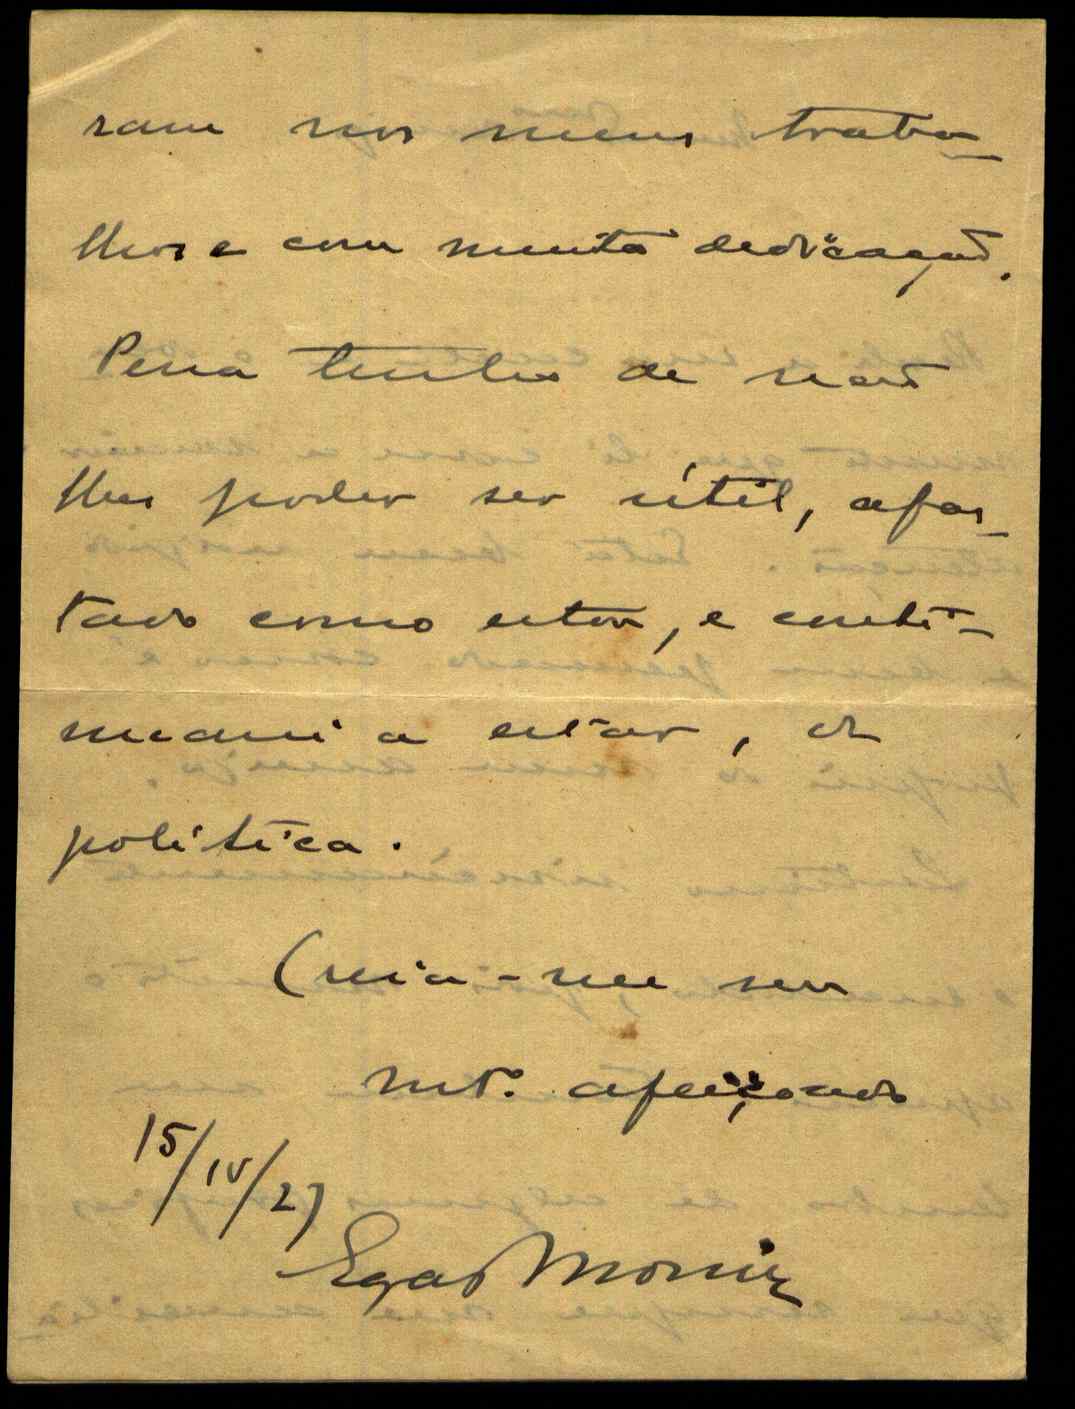 ram nos meus traba-
lhos e com muita dedicação.
Pena tenho de não
lhes poder ser útil, afas-
tado como estou, e conti-
nuarei a estar, da
política.
Creia-me seu
mto. afeiçoado
15/IV/27
Egas Moniz